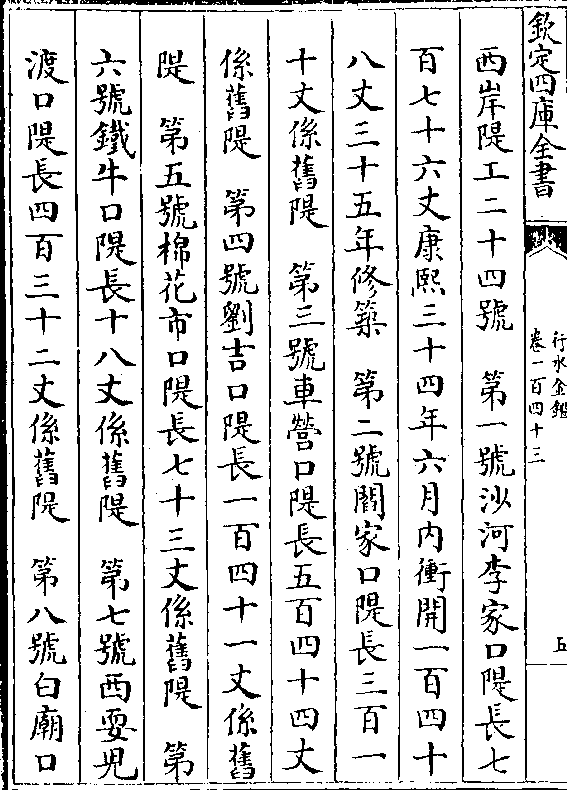 欽定四庫全書
行水金鑑
卷一百四十三
五
西岸隄工二十四號　第一號沙河李家口隄長七
百七十六丈康熙三十四年六月內衝開一百四十
八丈三十五年修築　第二號閻家口隄長三百一
十丈係舊隄　第三號車營口隄長五百四十四丈
係舊隄　第四號劉吉口隄長一百四十一丈係舊
隄　第五號棉花市口隄長七十三丈係舊隄　第
六號鐵牛口隄長十八丈係舊隄　第七號西耍兒
渡口隄長四百三十二丈係舊隄　第八號白廟口